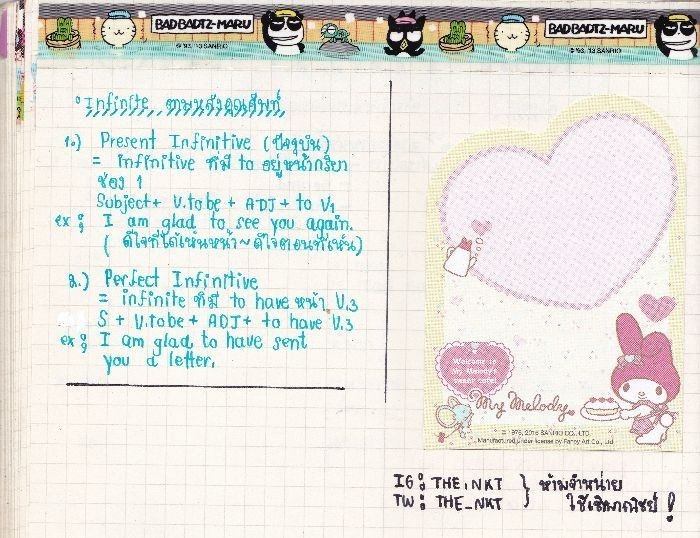 BADBADTZ-MARU
BADBADTZ-MARU
© '93, '13 SANRIO
© '93, '13 SANRIO
Infinite ตามหลังคุณศัพท์
1.) Present Infinitive (ปัจจุบัน)
= infinitive ที่มี to อยู่หน้ากริยา
ช่อง 1
Subject + V.tobe + ADJ + to V1
ex : I am glad to see you again.
( ดีใจที่ได้เห็นหน้า ~ ดีใจตอนที่เห็น)
2.) Perfect Infinitive
= infinite ที่มี to have หน้า V.3
S + V.tobe + ADJ + to have V.3
ex : I am glad to have sent
you a letter.
Welcome to
My Melody's
sweet cafe!
My Melody
© 1976, 2016 SANRIO CO., LTD.
Manufactured under license by Fancy Art Co., Ltd
IG : THE.NKT } ห้ามจำหน่าย
TW : THE_NKT ใช้เชิงพาณิชย์ !